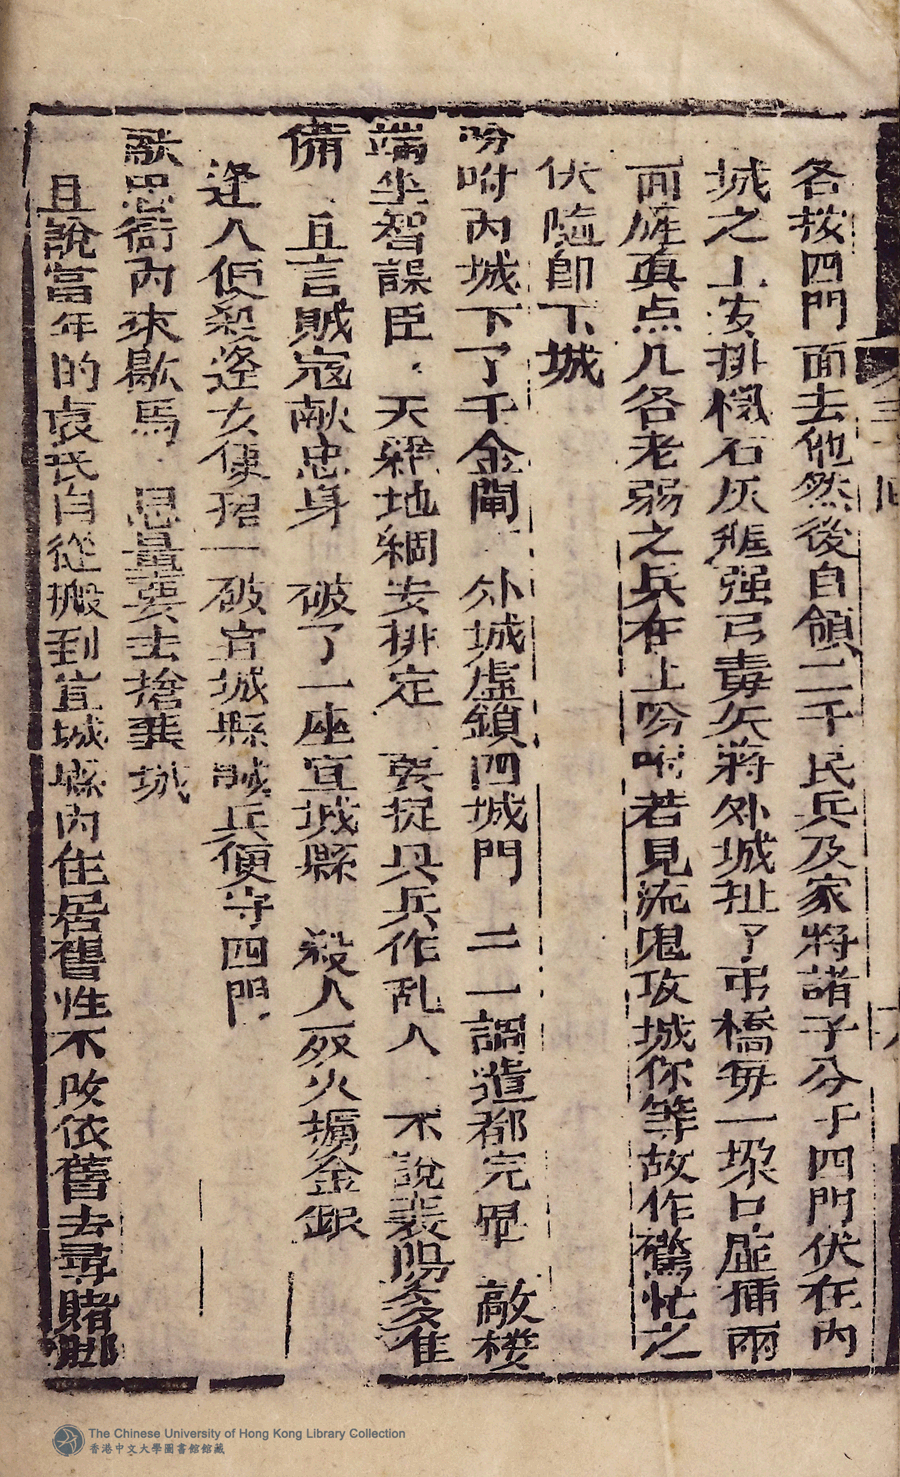 各按四門面去他然後自領二千民兵及家將諸子分于四門伏在內
城之上安排檑石灰瓶强弓毒矢將外城扯了吊橋每一垜口虛揷兩
面旌眞点几各老弱之兵在上吩咐若見流鬼攻城你等故作驚忙之
伏隨卽下城
吩咐內城下了千金閘 外城虛鎖四城門 二一調遣都完畢 敵楼
端坐智謀臣 天羅地網安排定 要捉興兵作乱人 不說裴陽多准
備 且言賊寇献忠身 破了一座宣城縣 殺人放火擄金銀
逢人便殺逢女便搭一破宜城縣喊兵便守四門
献忠衙內來歇馬 思量要去搶龔城
且說當年的袁氏自從搬到宜城縣內住居舊性不改依舊去尋賭
The Chinese University of Hong Kong Library Collection
香港中文大學圖書館館藏